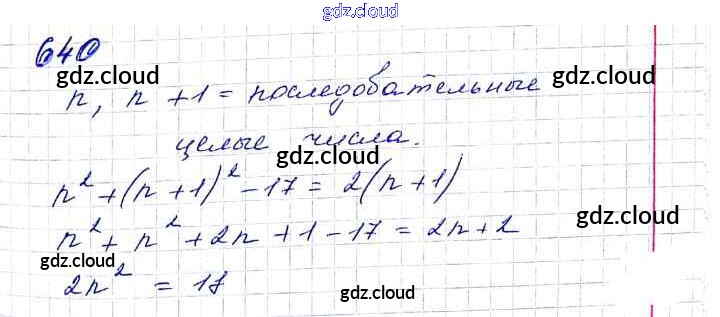 gdz.cloud
640
gdz.cloud gdz.cloud
n, n + 1 = последовательные gdz.cloud
целые числа.
gdz.cloud
n² + (n + 1)² - 17 = 2(n + 1)
gdz.cloud
n² + n² + 2n + 1 - 17 = 2n + 2
gdz.cloud gdz.cloud
2n² = 18
gdz.cloud